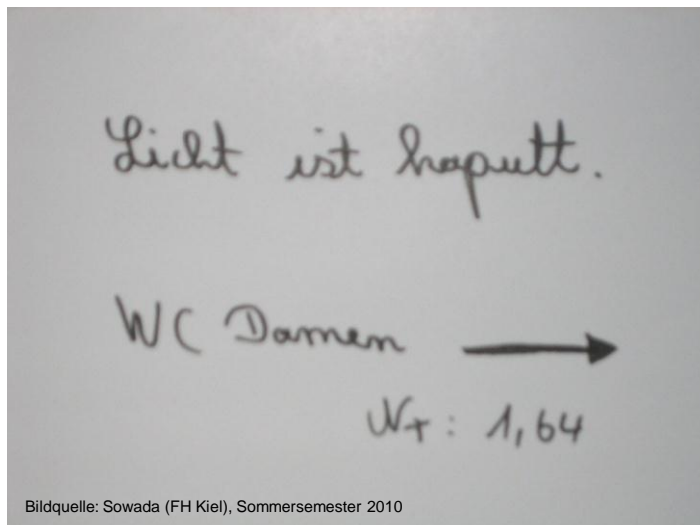 Licht ist kaputt.
WC Damen
Nr: 1,64
Bildquelle: Sowada (FH Kiel), Sommersemester 2010